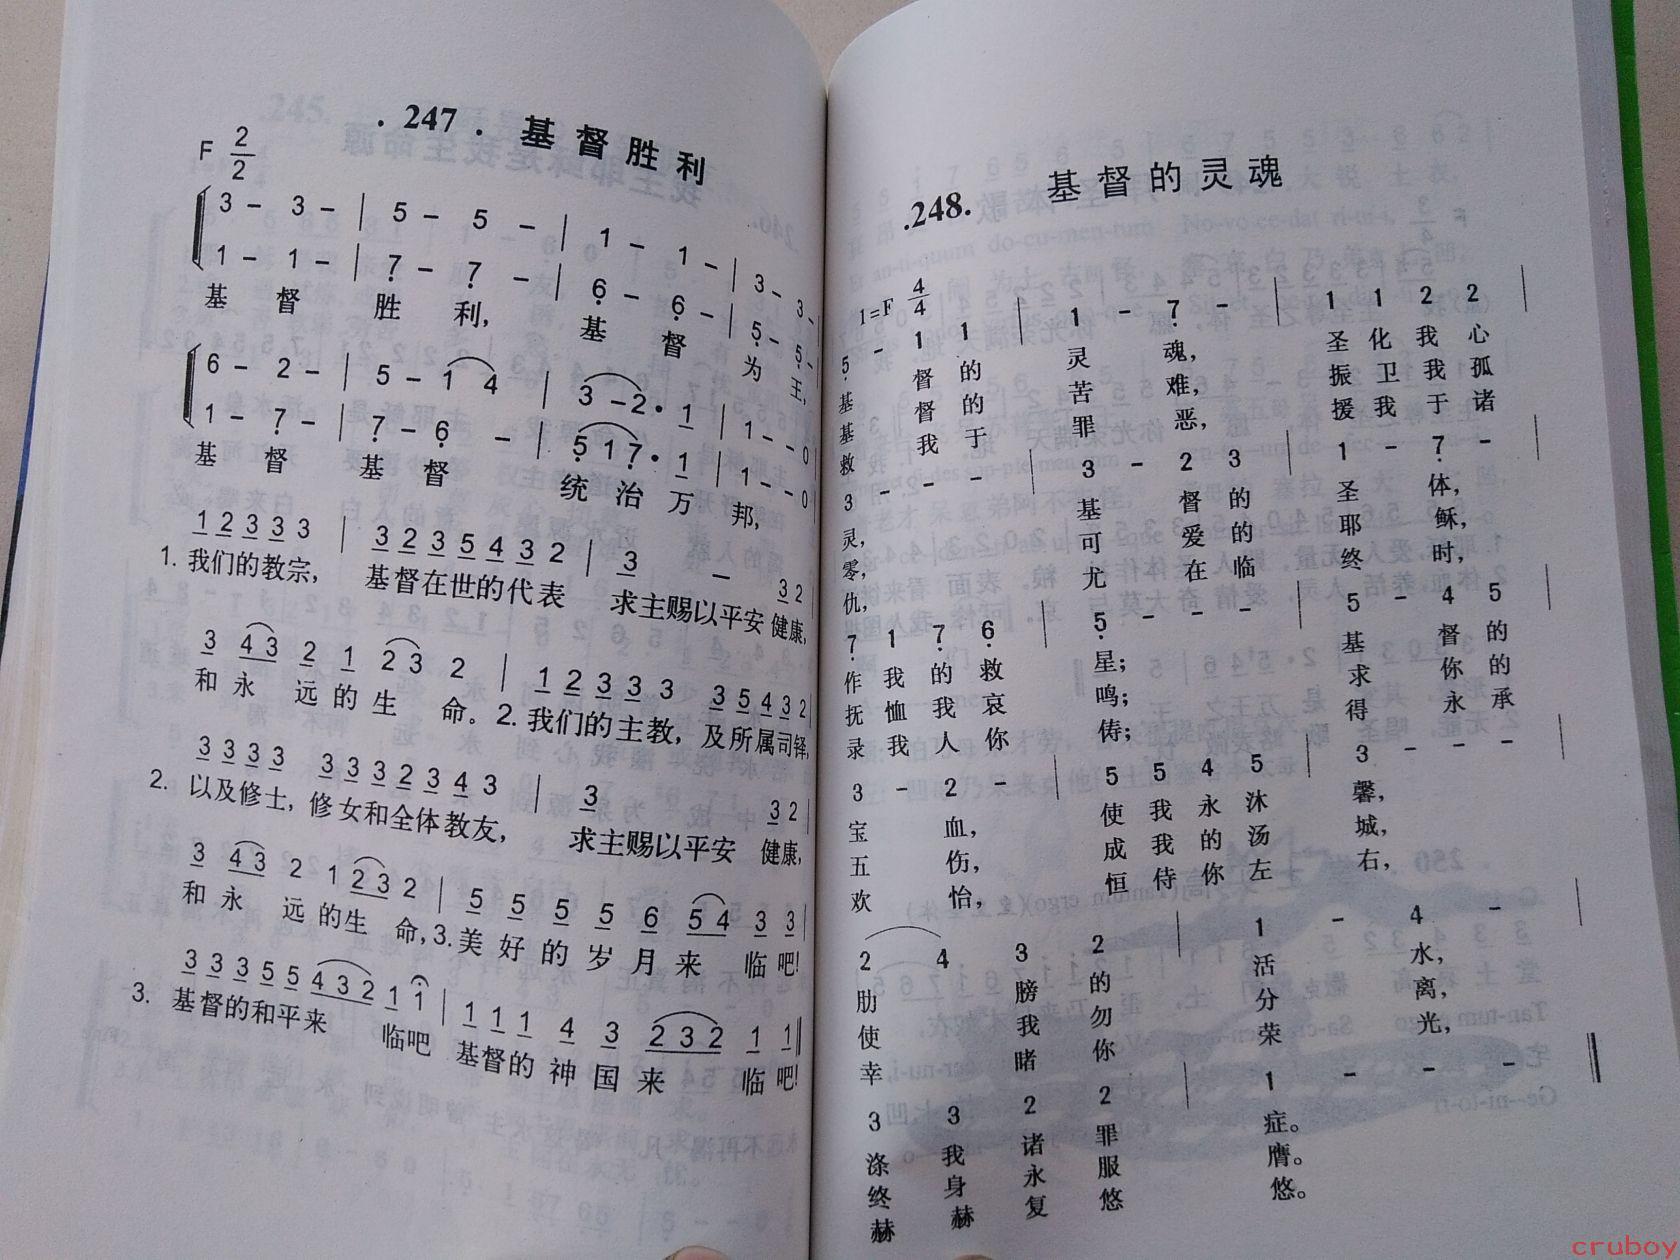 .247. 基督胜利
F 2/2
3 - 3 - | 5 - 5 - | 1 - 1 - | 3 - 3 -
1 - 1 - | 7 - 7 - | 6 - 6 - | 5 - 5 -
基 督 胜 利, 基 督 为 王,
6 - 2 - | 5 - 1 4 | 3 - 2 · 1 | 1 - - 0
1 - 7 - | 7 - 6 - | 5 1 7 · 1 | 1 - - 0
基 督 基 督 统 治 万 邦,
1 2 3 3 3 | 3 2 3 5 4 3 2 | 3 - 3 2
1. 我们的教宗, 基督在世的代表 求主赐以平安 健康,
3 4 3 2 1 2 3 2 | 1 2 3 3 3 3 5 4 3 2
和 永 远 的 生 命。2. 我们的主教, 及所属司铎,
3 3 3 3 3 3 3 2 3 4 3 | 3 3 2
2. 以及修士, 修女和全体教友, 求主赐以平安 健康,
3 4 3 2 1 2 3 2 | 5 5 5 5 6 5 4 3 3
和 永 远 的 生 命, 3. 美 好 的 岁 月 来 临 吧!
3 3 3 5 5 4 3 2 1 1 | 1 1 1 4 3 2 3 2 1 1
3. 基督的和平来 临吧 基督的 神 国 来 临 吧!
.248. 基督的灵魂
1=F 4/4
5 - 1 1 | 1 - 7 - | 1 1 2 2 |
基 督 的 灵 魂, 圣 化 我 心
基 督 的 苦 难, 振 卫 我 孤
救 我 于 罪 恶, 援 我 于 诸
3 - - - | 3 - 2 3 | 1 - 7 - |
灵, 基 督 的 圣 体,
零, 可 爱 的 耶 稣,
仇, 尤 在 临 终 时,
7 1 7 6 | 5 - - - | 5 4 5 |
作 我 的 救 星; 基 督 的
抚 恤 我 哀 鸣; 求 你 的
录 我 人 你 俦; 得 永 承
3 - 2 - | 5 5 4 5 | 3 - - - |
宝 血, 使 我 永 沐 馨,
五 伤, 成 我 的 汤 城,
欢 怡, 恒 侍 你 左 右,
2 4 3 2 | 1 - 4 - |
肋 膀 的 活 水,
使 我 勿 分 离,
幸 睹 你 荣 光,
3 3 2 2 | 1 - - -
涤 我 诸 罪 症。
终 身 永 服 膺。
赫 赫 复 悠 悠。
cruboy